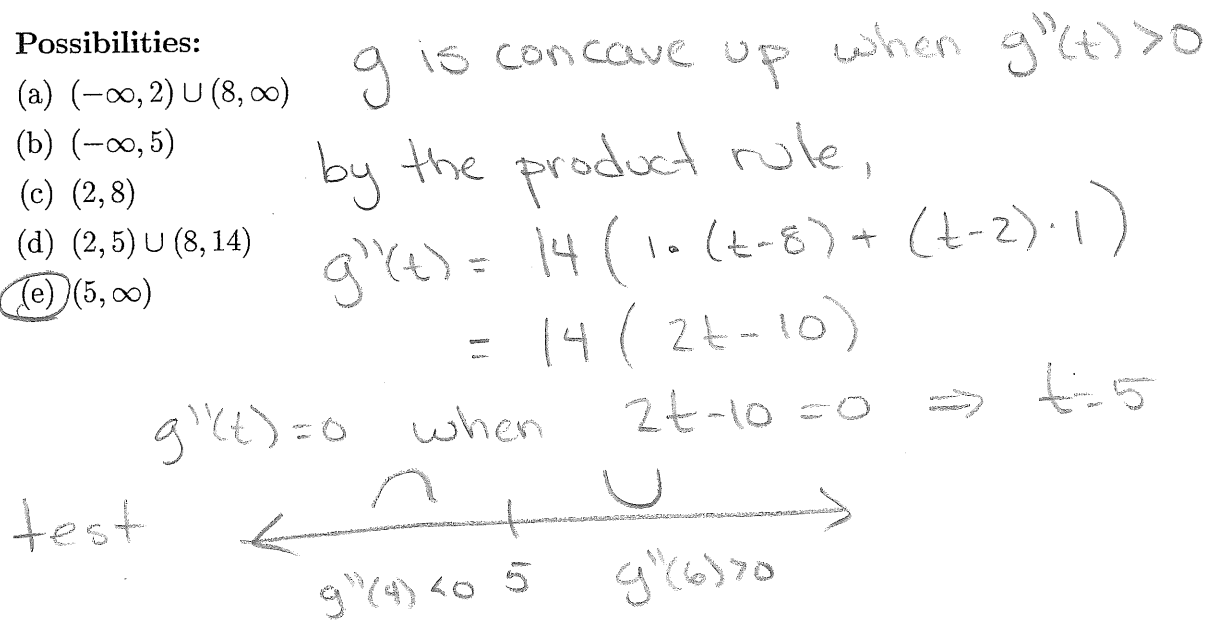 Possibilities:
(a) (−∞, 2) ∪ (8, ∞)
(b) (−∞, 5)
(c) (2, 8)
(d) (2, 5) ∪ (8, 14)
(e) (5, ∞)
g is concave up when g''(t) > 0
by the product rule,
g''(t) = 14 ( 1 · (t-8) + (t-2) · 1 )
= 14 ( 2t - 10 )
g''(t) = 0 when 2t-10 = 0 ⇒ t = 5
test
∩ ∪
g''(4) < 0 5 g''(6) > 0